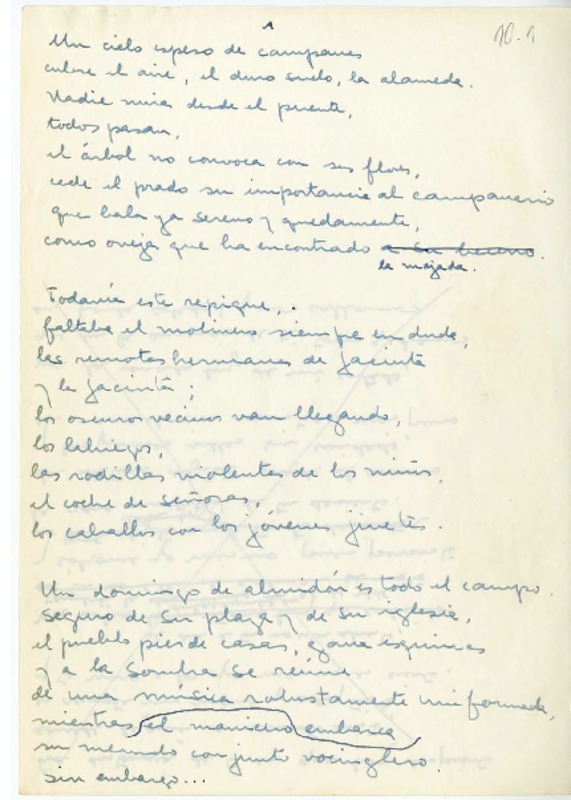 10.1
Un cielo espeso de campanas
cubre el aire, el duro suelo, la alameda.
Nadie mira desde el puente,
todos pasan,
el árbol no convoca con sus flores,
cede el prado su importancia al campanario
que bala ya sereno y quedamente,
como oveja que ha encontrado a su becerro.
la majada.
Todavía este repique,.
faltaba el molinero siempre en duda,
las remotas hermanas de Jacinta
y la Jacinta;
los oscuros vecinos van llegando,
los labriegos,
las rodillas violentas de los niños,
el coche de señoras,
los caballos con los jóvenes jinetes.
Un domingo de almidón es todo el campo.
Seguro de su plaza y de su iglesia,
el pueblo pierde casas, gana esquinas
y a la sombra se reúne
de una música robustamente uniformada,
mientras el manicero embarca
su menudo conjunto vocinglero.
sin embargo...